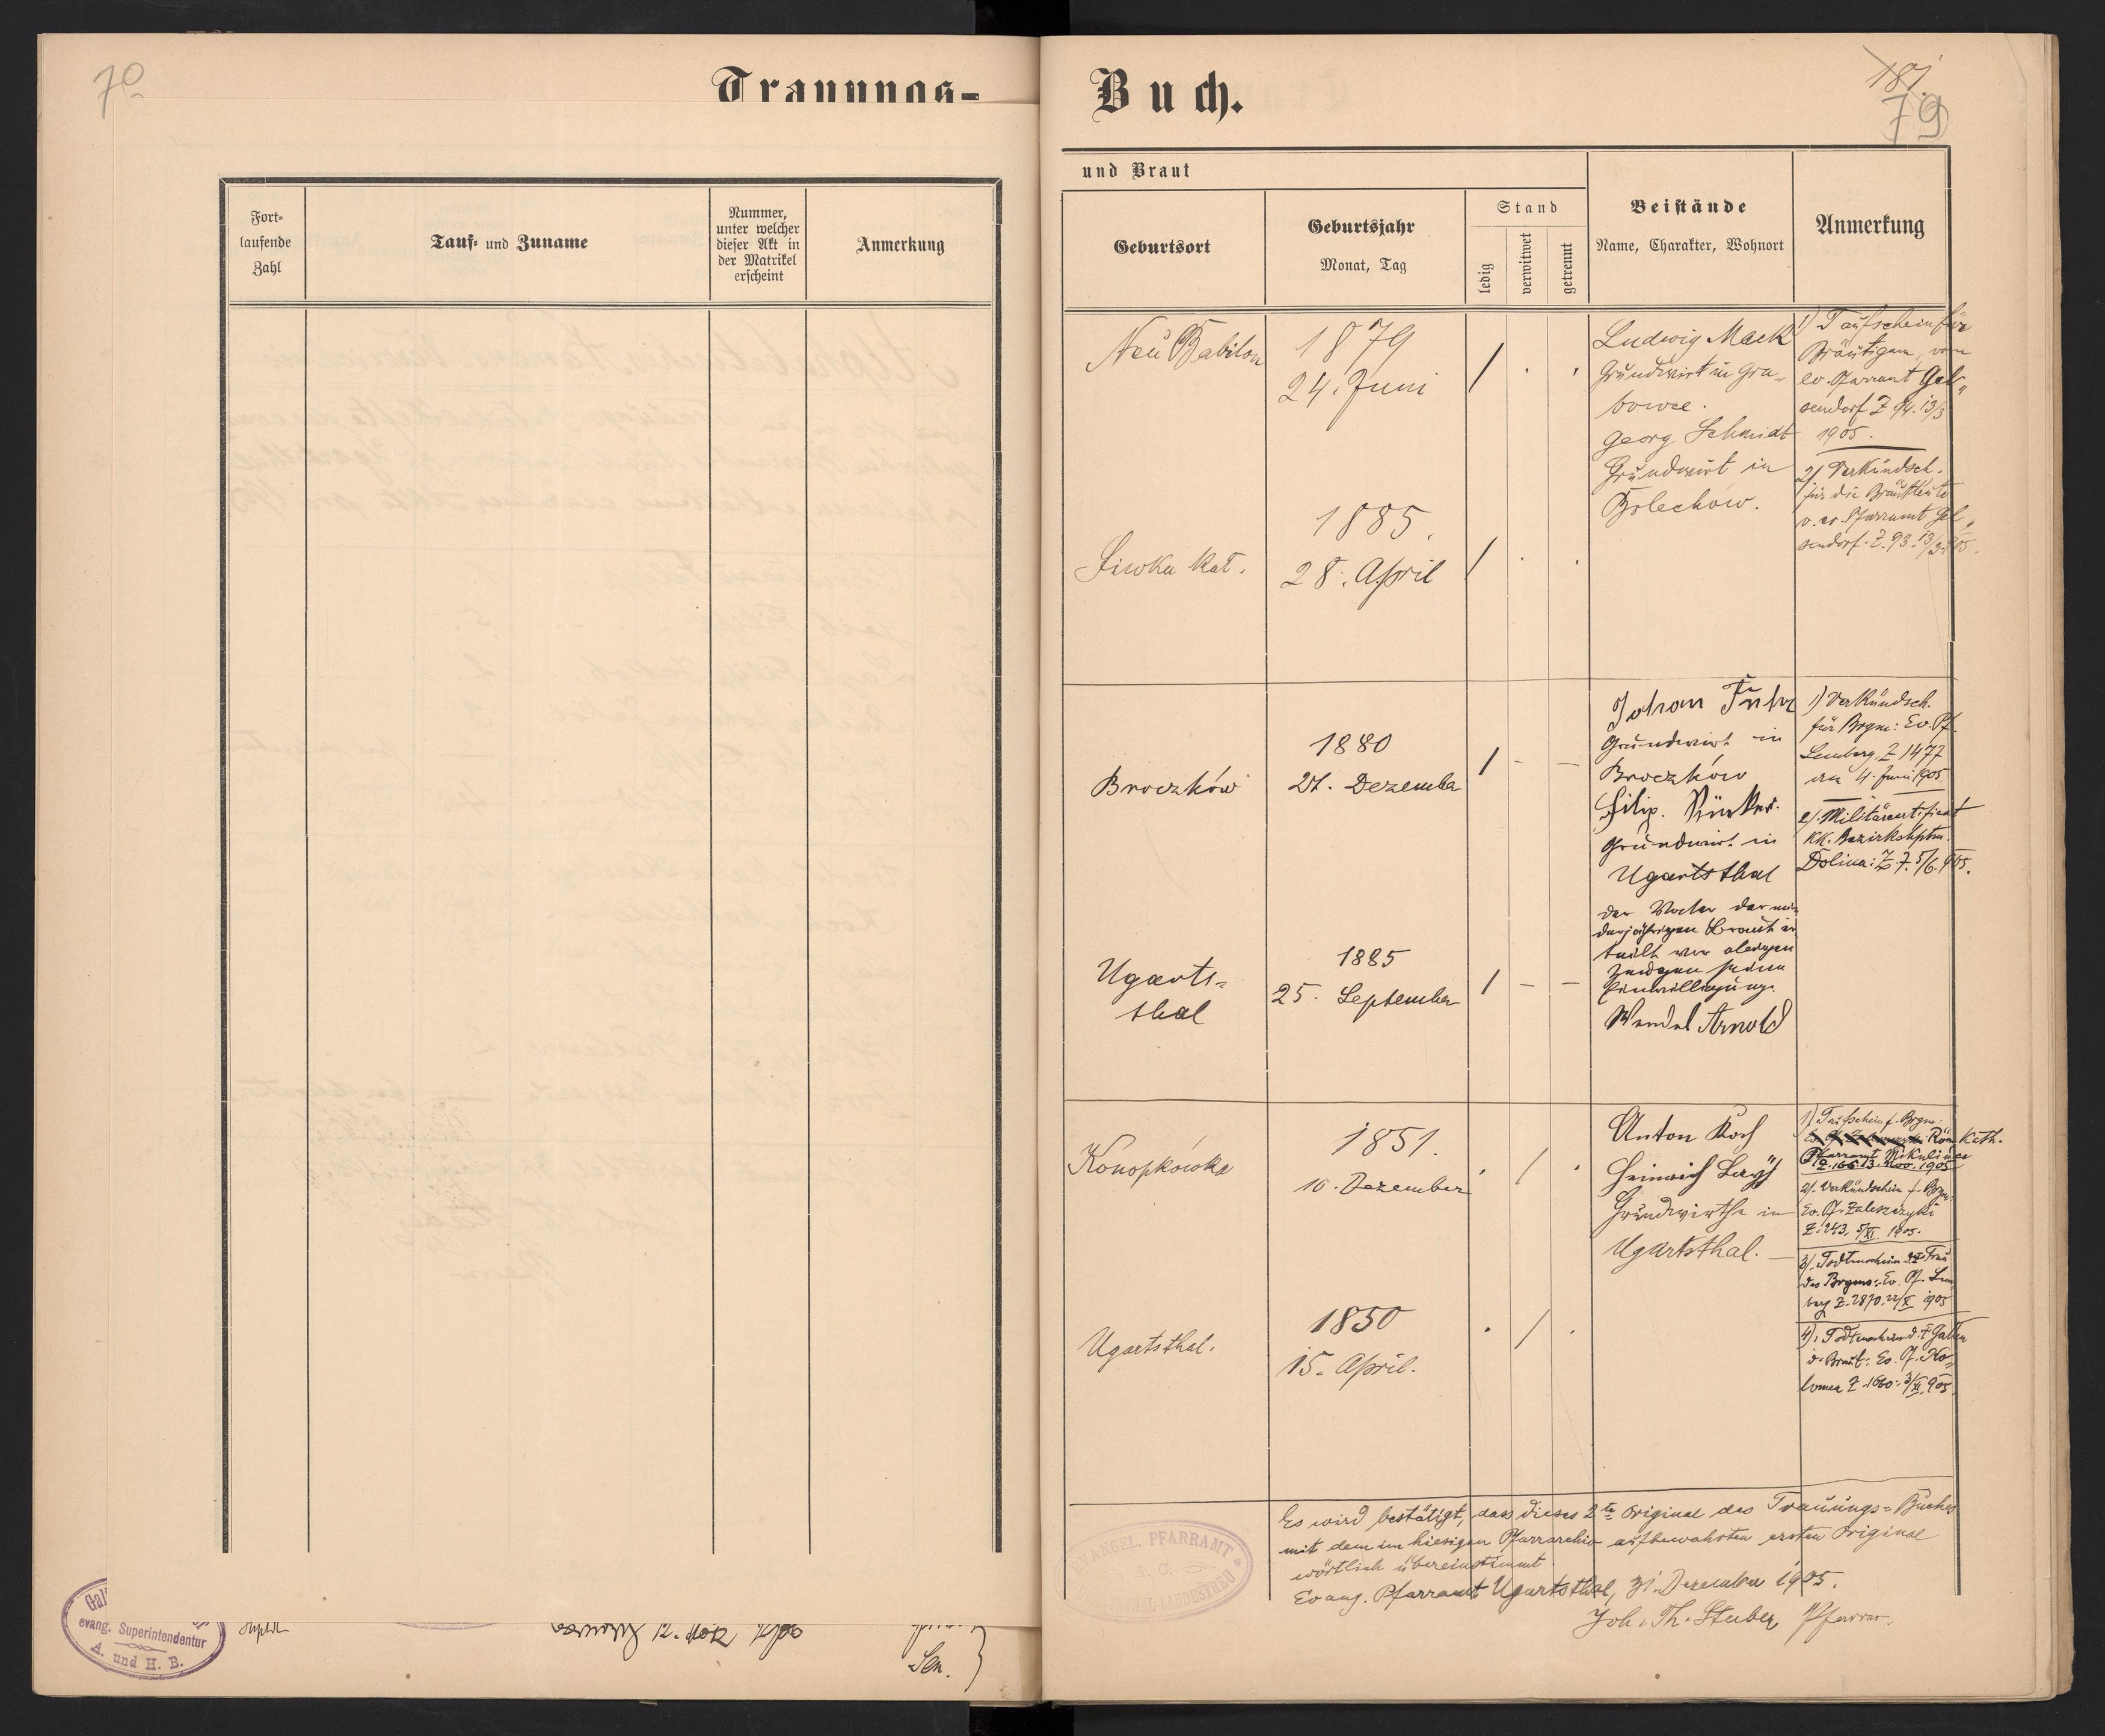 70
Trauungs-
Fort-
laufende
Zahl
Tauf- und Zuname
Nummer,
unter welcher
dieser Akt in
der Matrikel
erscheint
Anmerkung
evang. Superintendentur
A. und H. B.
Sen.
Buch.
187.
79
und Braut
Geburtsort
Geburtsjahr
Monat, Tag
Stand
ledig
verwitwet
getrennt
Beistände
Name, Charakter, Wohnort
Anmerkung
Neu Babilon
1879
24. Juni
Ludwig Mack
Grundwirt in Gra-
bowce.
Georg Schmidt
Grundwirt in
Bolechów.
1) Taufschein für
Bräutigam, vom
ev. Pfarramt Gel-
sendorf Z 94. 13/3
1905.
2) Verkündsch.
für die Brautleute
v. ev. Pfarramt Gel-
sendorf. Z. 93. 13/3 905.
Siwka Kał.
1885.
28. April
Broczków
1880
21. Dezember
Johan Fuhr
Grundwirt in
Broczków
Filip
Grundwirt in
Ugartsthal
der Vater der min-
derjährigen Braut er-
teilt vor obigen
Zeugen seine
Einwilligung.
Wendel Arnold
1) Verkündsch.
für Brgm: Ev. Pf.
Lemberg Z 1477
4. Juni 1905
2). Militärcertificat
KK. Bezirkshptm.
Dolina: Z. 7. 5/6. 905.
Ugarts-
thal
1885
25. September
Konopkówka
1851.
10. Dezember
Anton Koch
Heinrich
Grundwirthe in
Ugartsthal.
1) Taufschein f. Brgm:
Röm Kath.
Pfarramt Mikulince
Z. 166. 13. Nov. 1905
2). Verkündschein f. Brgm.
Ev. Pf. Zaleszczyki
Z. 243. 5/XI. 1905.
3). Todtenschein d. † Frau
des Brgms: Ev. Pf. Lem-
berg Z. 2870. 22/X 1905
4). Todtenschein d. † Gatten
d. Braut: Ev. Pf. Ko-
lomea Z 1660: 3/XI. 905.
Ugartsthal.
1850
15. April.
Es wird bestätigt, dass dieses 2te Original des Trauungs-Buches
mit dem im hiesigen Pfarrarchiv aufbewahrten ersten Original
wörtlich übereinstimmt.
Evang. Pfarramt Ugartsthal, 31. Dezember 1905.
Joh. Th. Stuber, Pfarrer.
EVANGEL. PFARRAMT
A. C.